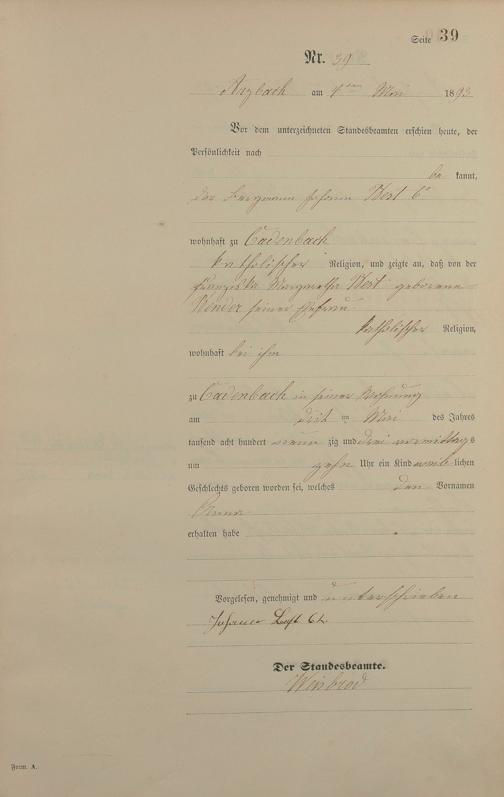 Seite 39
Nr. 39
Arzbach am 4ten Mai 1893
Vor dem unterzeichneten Standesbeamten erschien heute, der
Persönlichkeit nach
be kannt,
der Bergmann Johann
wohnhaft zu Cadenbach
katholischer Religion, und zeigte an, daß von der
Franziska Margaretha geborene
seiner Ehefrau
katholischer Religion,
wohnhaft bei ihm
zu Cadenbach in seiner Wohnung
am ten Mai des Jahres
tausend acht hundert neun zig und drei vormittags
um zehn Uhr ein Kind weib lichen
Geschlechts geboren worden sei, welches den Vornamen
Anna
erhalten habe
Vorgelesen, genehmigt und unterschrieben
Johann
Der Standesbeamte.
Weisbrod
Form. A.